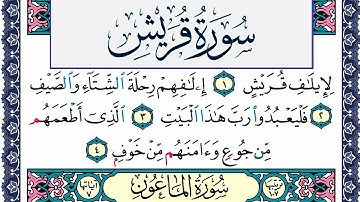 سُورَةُ قُرَيْشٍ
لِإِيلَٰفِ قُرَيْشٍ ١ إِۦلَٰفِهِمْ رِحْلَةَ ٱلشِّتَآءِ وَٱلصَّيْفِ
٢ فَلْيَعْبُدُوا۟ رَبَّ هَٰذَا ٱلْبَيْتِ ٣ ٱلَّذِىٓ أَطْعَمَهُم
مِّن جُوعٍ وَءَامَنَهُم مِّنْ خَوْفٍۭ ٤
سُورَةُ المَاعُونِ آياتها ٧